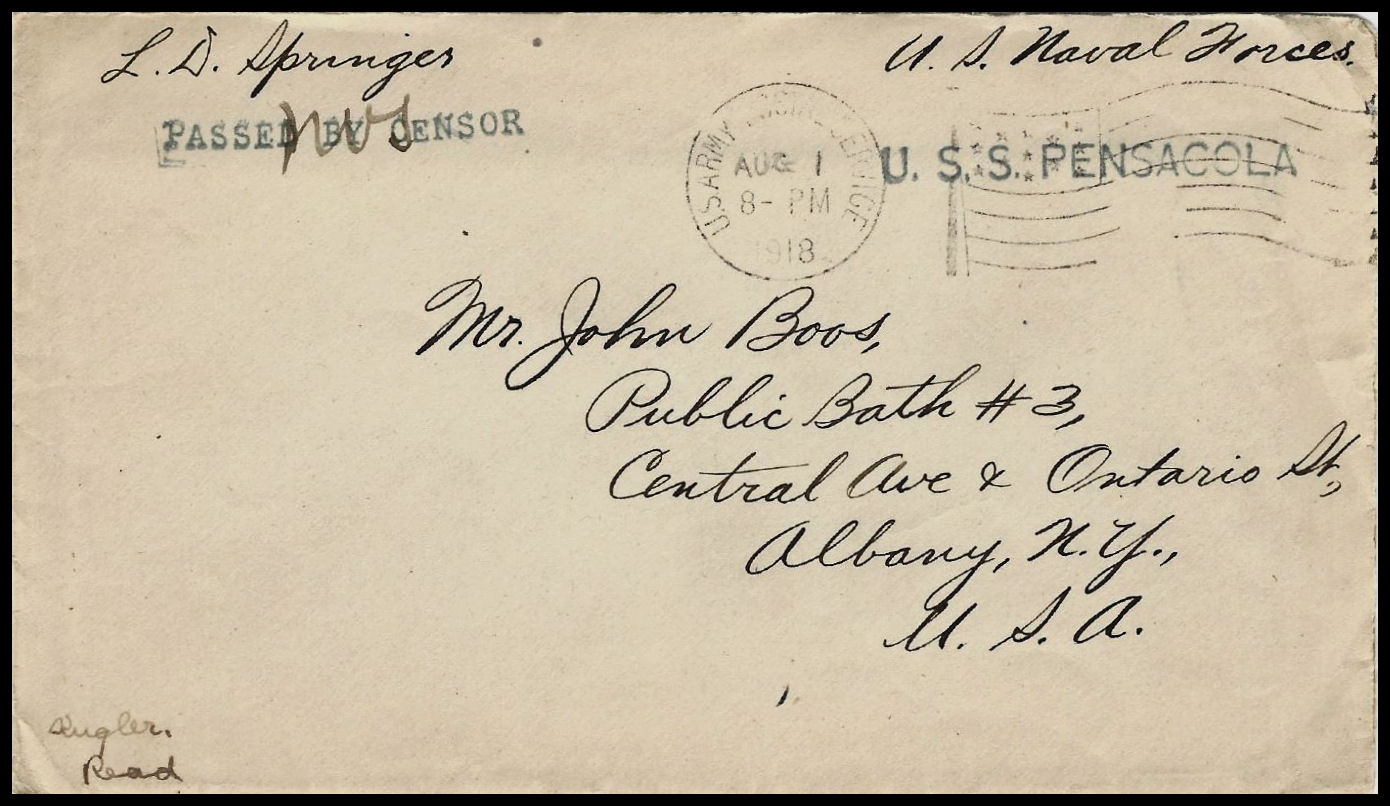 L. D. Springer
U. S. Naval Forces.
PASSED BY CENSOR
nws
U.S. ARMY POSTAL SERVICE
AUG 1
8- PM
1918
U. S. S. PENSACOLA
Mr. John Boos,
Public Bath # 3,
Central Ave & Ontario St,
Albany, N. Y.,
U. S. A.
Kugler.
Read